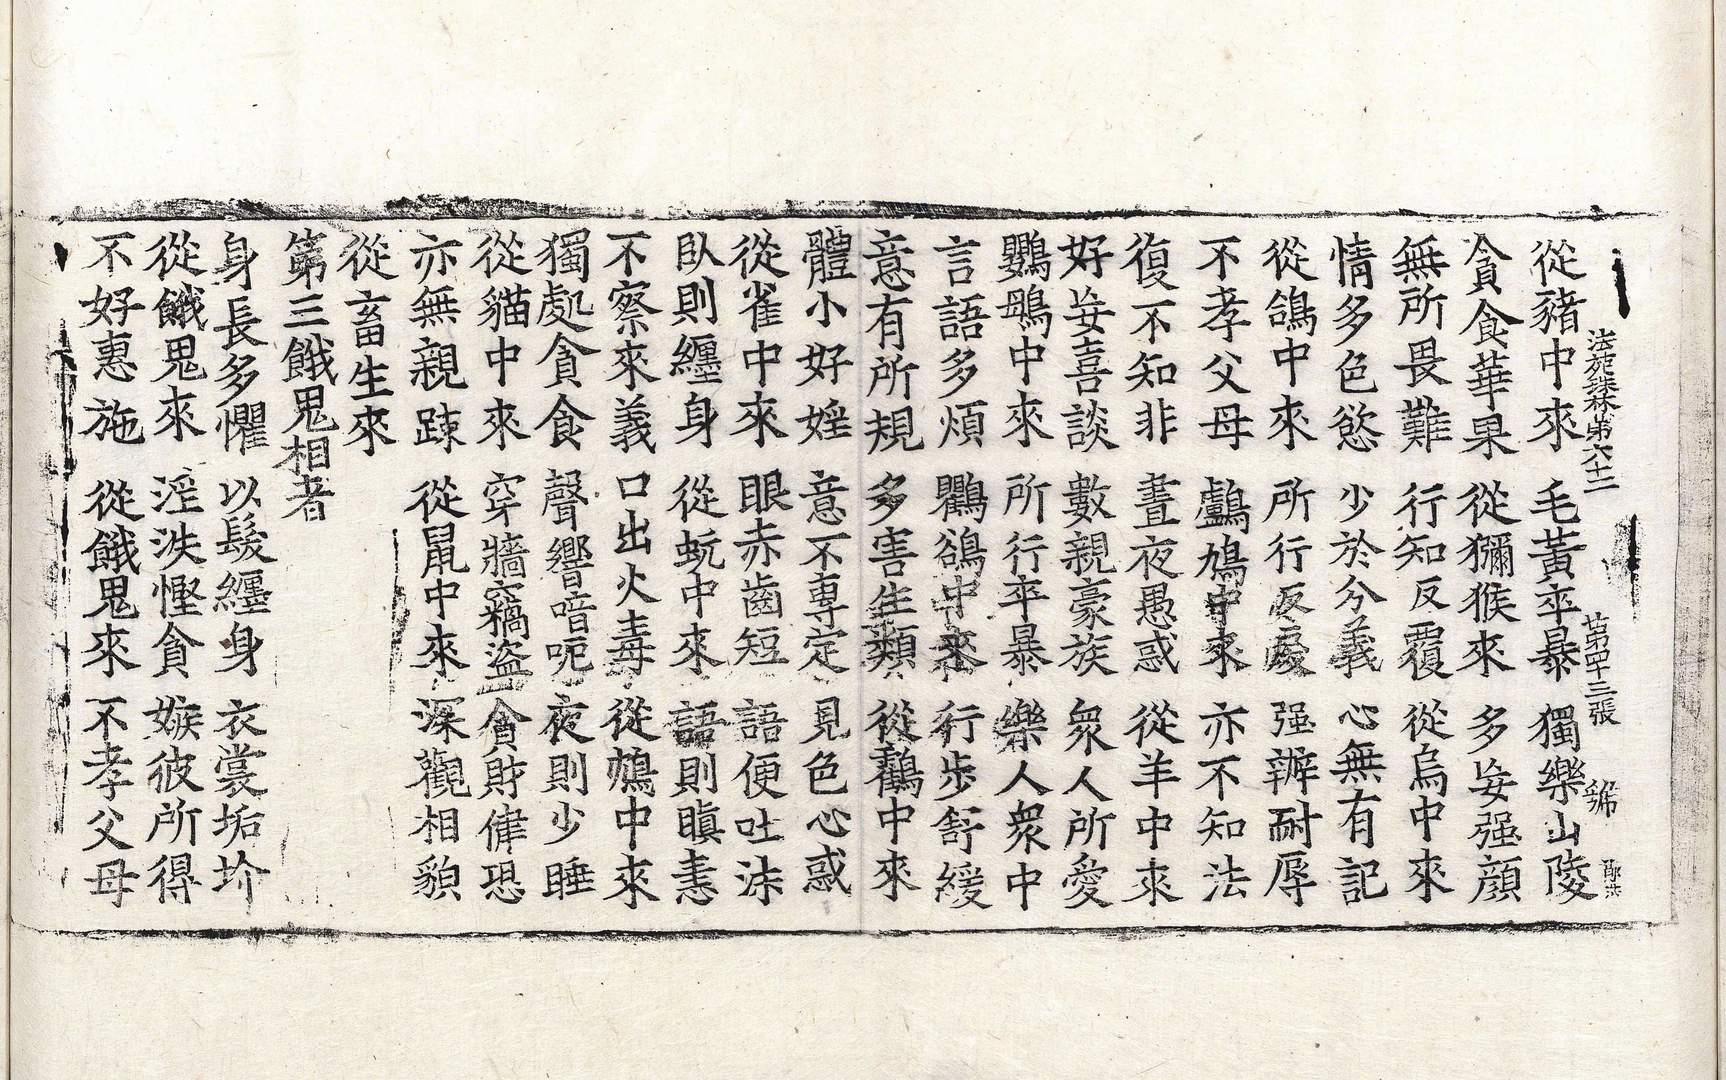 法苑珠林第六十二 苐四十三張
從豬中來 毛黃卒暴 獨樂山陵
貪食華果 從獼猴來 多妄强顔
無所畏難 行知反覆 從烏中來
情多色慾 少於分義 心無有記
從鴿中來 所行反戾 强辯耐辱
不孝父母 鸕鳩中來 亦不知法
復不知非 晝夜愚惑 從羊中來
好妄喜談 數親豪族 衆人所愛
鸚䳇中來 所行卒暴 樂人衆中
言語多煩 鸜鵒中來 行步舒緩
意有所規 多害生類 從鸛中來
體小好婬 意不專定 見色心惑
從雀中來 眼赤齒短 語便吐沫
臥則纏身 從蚖中來 語則瞋恚
不察來義 口出火毒 從鴆中來
獨處貪食 聲響喑呃 夜則少睡
從貓中來 穿牆竊盜 貪財健恐
亦無親踈 從鼠中來 深觀相貌
從畜生來
第三餓鬼相者
身長多懼 以髮纏身 衣裳垢圿
從餓鬼來 淫泆慳貪 嫉彼所得
不好惠施 從餓鬼來 不孝父母